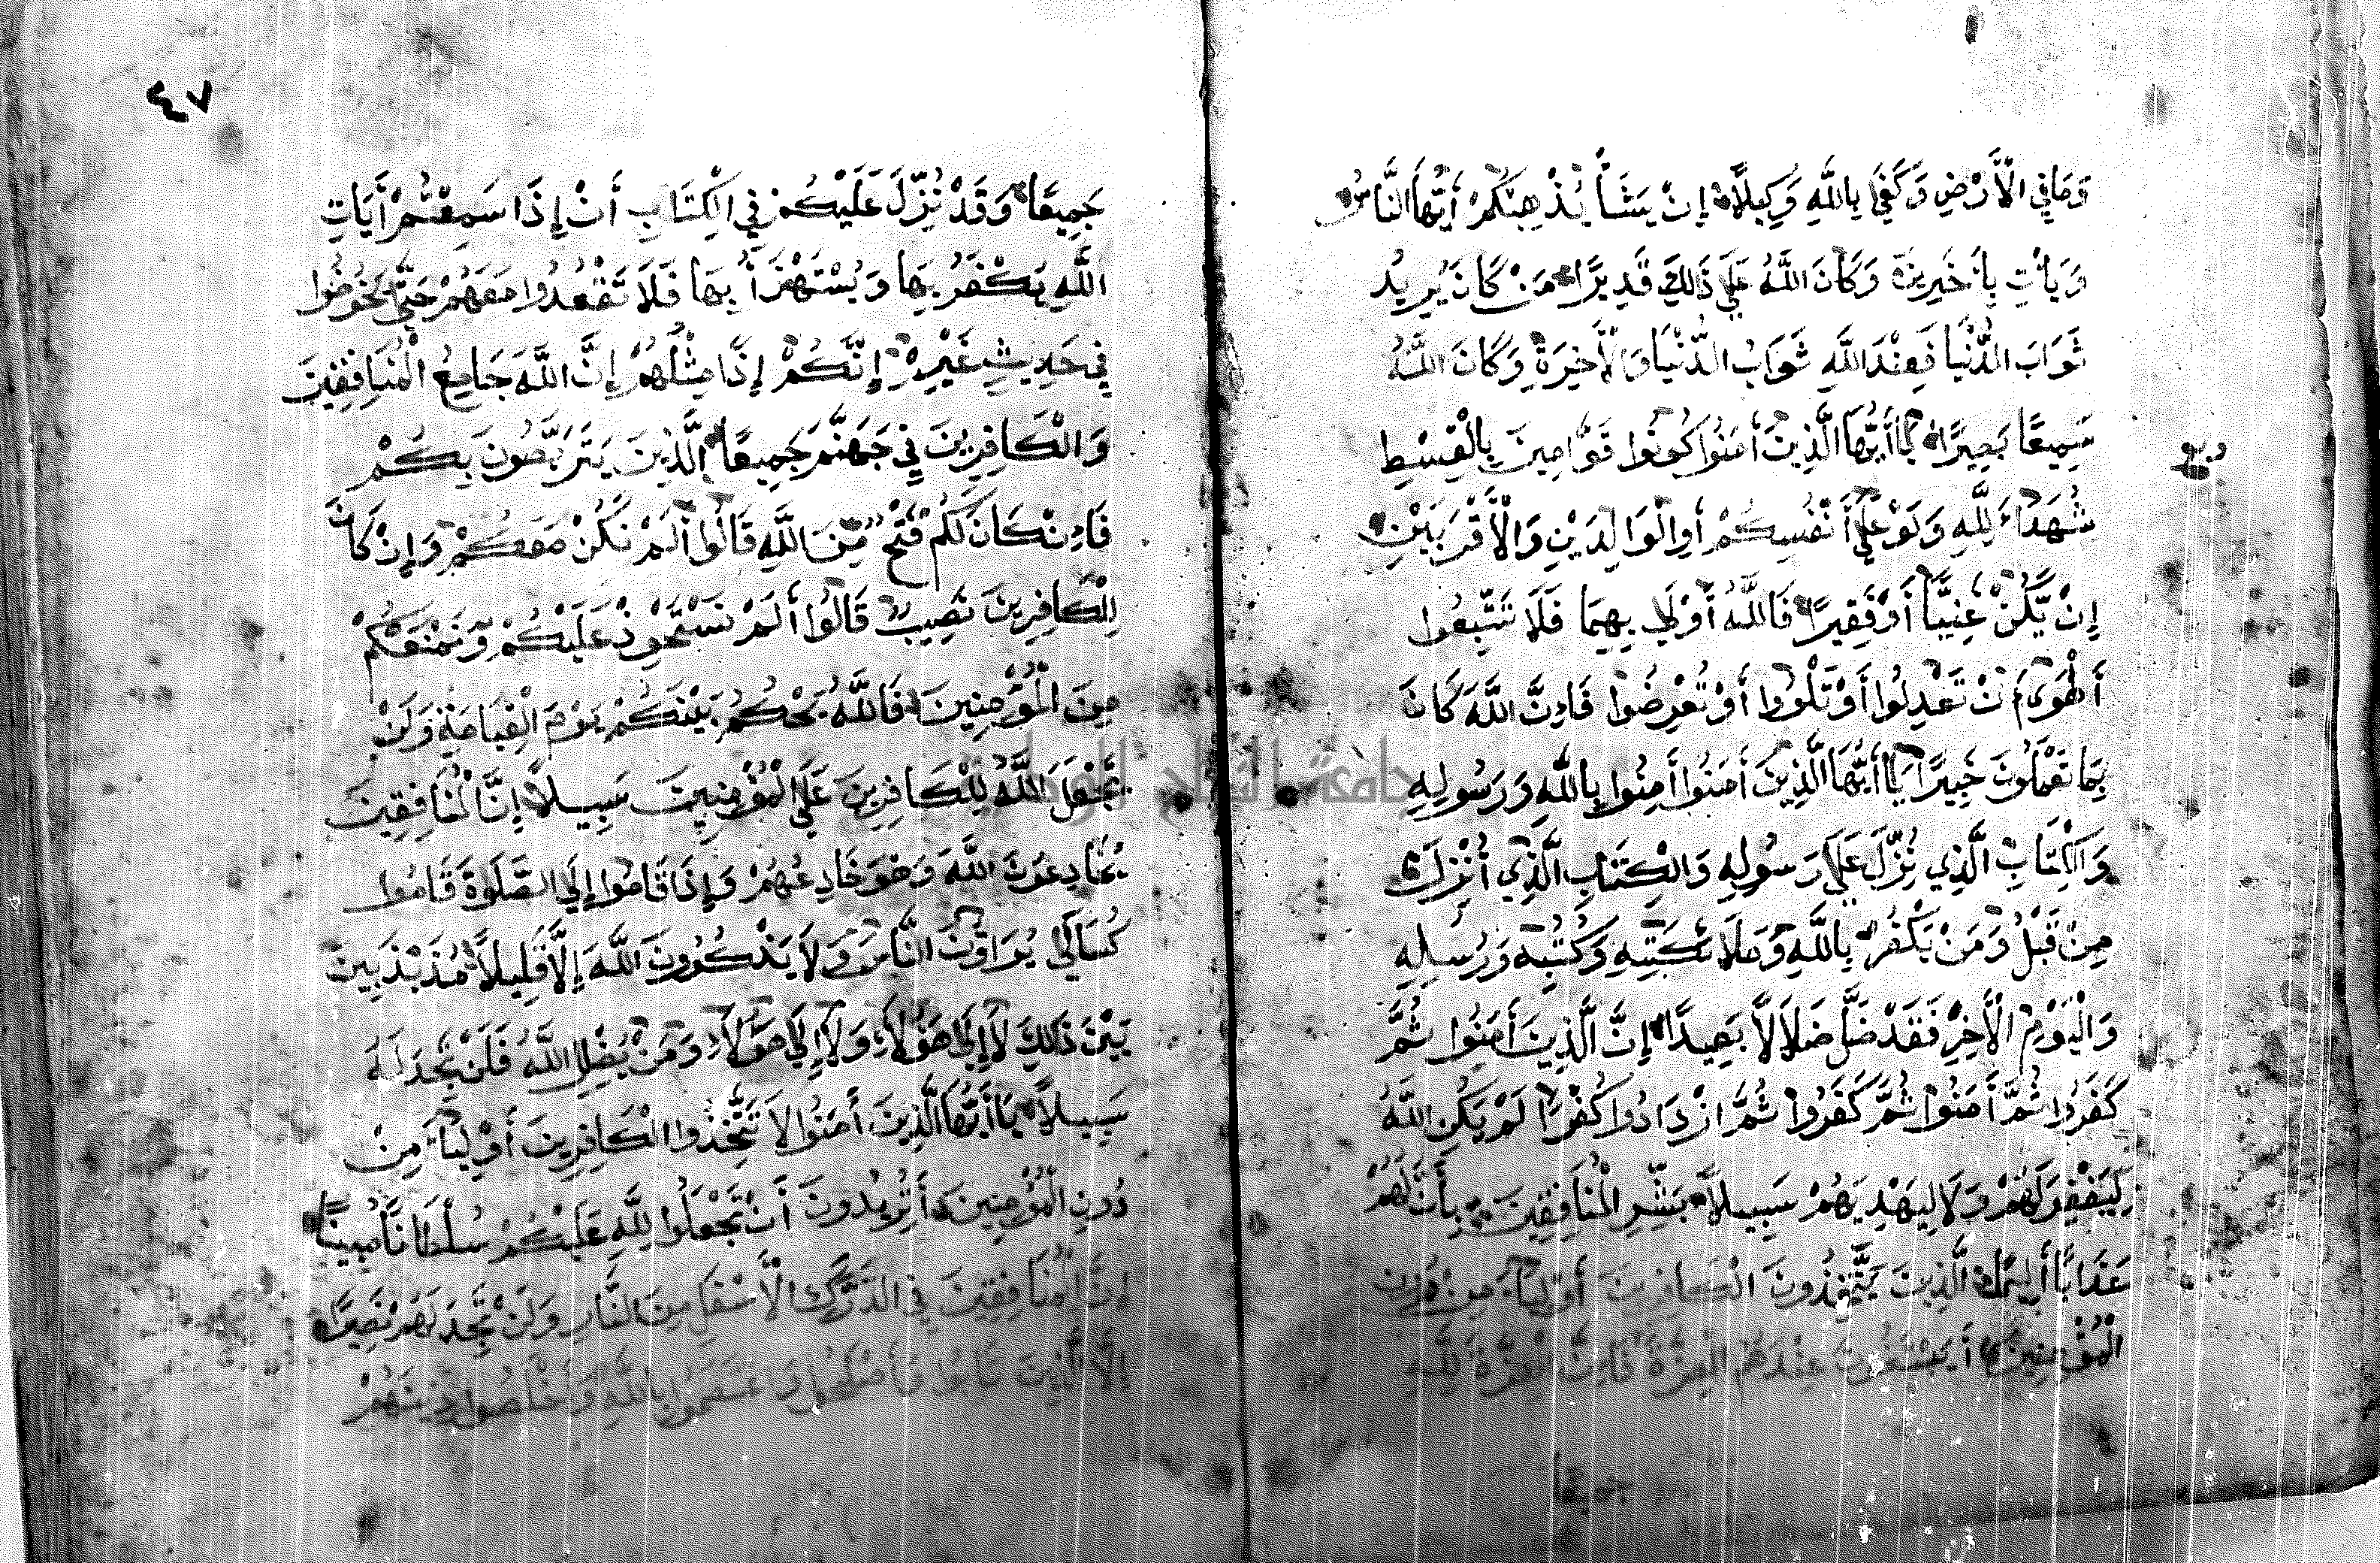 وَمَا فِي الْأَرْضِ وَكَفَىٰ بِاللَّهِ وَكِيلًا إِنْ يَشَأْ يُذْهِبْكُمْ أَيُّهَا النَّاسُ
وَيَأْتِ بِأَخَرِينَ وَكَانَ اللَّهُ عَلَىٰ ذَلِكَ قَدِيرًا مَنْ كَانَ يُرِيدُ
ثَوَابَ الدُّنْيَا فَعِنْدَ اللَّهِ ثَوَابُ الدُّنْيَا وَالْأَخِرَةِ وَكَانَ اللَّهُ
سَمِيعًا بَصِيرًا يَا أَيُّهَا الَّذِينَ أَمَنُوا كُونُوا قَوَّامِينَ بِالْقِسْطِ
شُهَدَاءَ لِلَّهِ وَلَوْ عَلَى أَنْفُسِكُمْ أَوِ الْوَالِدَيْنِ وَالْأَقْرَبَيْنِ
إِنْ يَّكُنْ غَنِيًّا أَوْ فَقِيرًا فَاللَّهُ أَوْلَىٰ بِهِمَا فَلَا تَتَّبِعُوا
أَنْ تَعْدِلُوا أَوْ تَلْوُوا أَوْ تُعْرِضُوا فَإِنَّ اللَّهَ كَانَ
بِمَا تَعْمَلُونَ خَبِيرًا يَا أَيُّهَا الَّذِينَ أَمَنُوا أَمِنُوا بِاللَّهِ وَرَسُولِهِ
وَالْكِتَابِ الَّذِي نُزِّلَ عَلَىٰ رَسُولِهِ وَالْكِتَابِ الَّذِي أُنْزِلَ
مِنْ قَبْلُ وَمَنْ يَكْفُرْ بِاللَّهِ وَمَلَائِكَتِهِ وَكُتُبِهِ وَرُسُلِهِ
وَالْيَوْمِ الْأَخِرِ فَقَدْ ضَلَّ ضَلَالًا بَعِيدًا إِنَّ الَّذِينَ أَمَنُوا ثُمَّ
كَفَرُوا ثُمَّ أَمَنُوا ثُمَّ كَفَرُوا ثُمَّ ازْدَادُوا كُفْرًا لَمْ يَكُنِ اللَّهُ
لِيَغْفِرَ لَهُمْ وَلَا لِيَهْدِيَهُمْ سَبِيلًا بَشِّرِ الْمُنَافِقِينَ بِأَنَّ لَهُمْ
عَذَابًا أَلِيمًا الَّذِينَ يَتَّخِذُونَ الْكَافِرِينَ أَوْلِيَاءَ مِنْ دُونِ
الْمُؤْمِنِينَ أَيَبْتَغُونَ عِنْدَهُمُ الْعِزَّةَ فَإِنَّ الْعِزَّةَ لِلَّهِ
جميعا
٤٧
جَمِيعًا وَقَدْ نُزِّلَ عَلَيْكُمْ فِي الْكِتَابِ أَنْ إِذَا سَمِعْتُمْ أَيَاتِ
اللَّهِ يُكْفَرُ بِهَا وَيُسْتَهْزَأُ بِهَا فَلَا تَقْعُدُوا مَعَهُمْ حَتَّىٰ يَخُوضُوا
فِي حَدِيثٍ غَيْرِهِ إِنَّكُمْ إِذًا مِثْلُهُمْ إِنَّ اللَّهَ جَامِعُ الْمُنَافِقِينَ
وَالْكَافِرِينَ فِي جَهَنَّمَ جَمِيعًا الَّذِينَ يَتَرَبَّصُونَ بِكُمْ
فَإِنْ كَانَ لَكُمْ فَتْحٌ مِّنَ اللَّهِ قَالُوا أَلَمْ نَكُنْ مَعَكُمْ وَإِنْ كَانَ
لِلْكَافِرِينَ نَصِيبٌ قَالُوا أَلَمْ نَسْتَحْوِذْ عَلَيْكُمْ وَنَمْنَعْكُمْ
مِنَ الْمُؤْمِنِينَ فَاللَّهُ يَحْكُمُ بَيْنَكُمْ يَوْمَ الْقِيَامَةِ وَلَنْ
يَجْعَلَ اللَّهُ لِلْكَافِرِينَ عَلَى الْمُؤْمِنِينَ سَبِيلًا إِنَّ الْمُنَافِقِينَ
يُخَادِعُونَ اللَّهَ وَهُوَ خَادِعُهُمْ وَإِذَا قَامُوا إِلَى الصَّلَوةِ قَامُوا
كُسَالَىٰ يُرَاؤُنَ النَّاسَ وَلَا يَذْكُرُونَ اللَّهَ إِلَّا قَلِيلًا مُذَبْذَبِينَ
بَيْنَ ذَلِكَ لَا إِلَىٰ هَؤُلَاءِ وَلَا إِلَىٰ هَؤُلَاءِ وَمَنْ يُضْلِلِ اللَّهُ فَلَنْ تَجِدَ لَهُ
سَبِيلًا يَا أَيُّهَا الَّذِينَ أَمَنُوا لَا تَتَّخِذُوا الْكَافِرِينَ أَوْلِيَاءَ مِنْ
دُونِ الْمُؤْمِنِينَ أَتُرِيدُونَ أَنْ تَجْعَلُوا لِلَّهِ عَلَيْكُمْ سُلْطَانًا مُبِينًا
إِنَّ الْمُنَافِقِينَ فِي الدَّرْكِ الْأَسْفَلِ مِنَ النَّارِ وَلَنْ تَجِدَ لَهُمْ نَصِيرًا
إِلَّا الَّذِينَ تَابُوا وَأَصْلَحُوا وَاعْتَصَمُوا بِاللَّهِ وَأَخْلَصُوا دِينَهُمْ